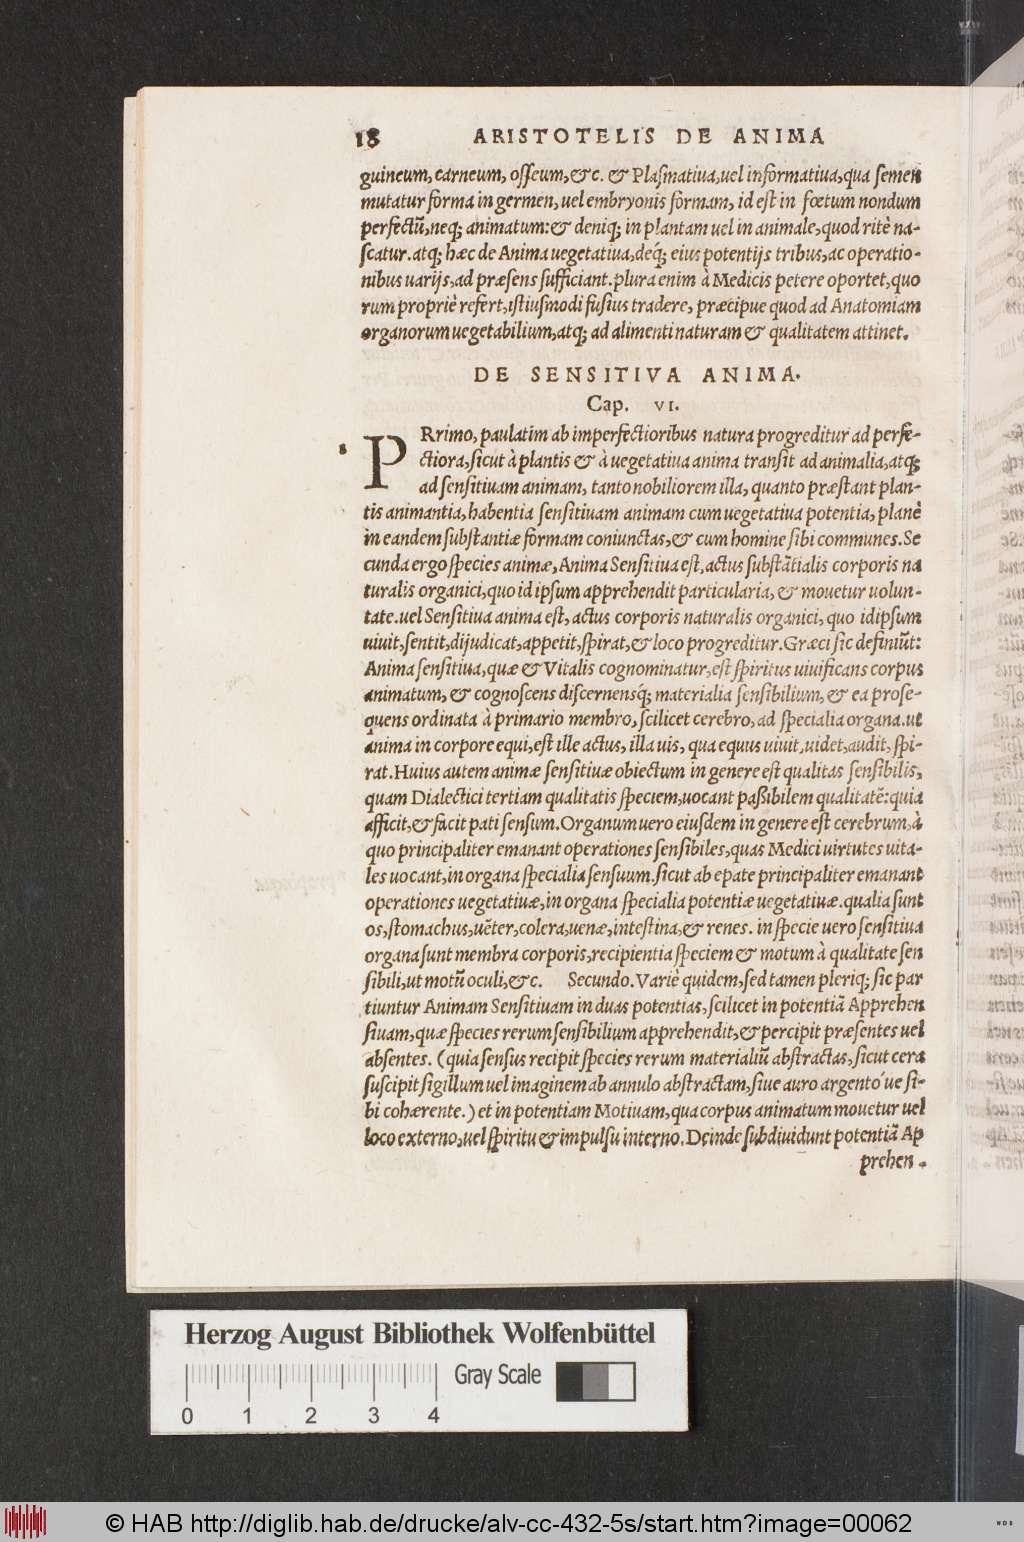 18 ARISTOTELIS DE ANIMA
guineum, carneum, oſſeum, &c. & Plaſmatiua, uel informatiua, qua ſemen
mutatur forma in germen, uel embryonis formam, id eſt in fœtum nondum
perfectū, neq; animatum: & deniq; in plantam uel in animale, quod ritè na-
ſcatur. atq; hæc de Anima uegetatiua, déq; eius potentijs tribus, ac operatio-
nibus uarijs, ad præſens ſufficiant. plura enim à Medicis petere oportet, quo
rum propriè refert, iſtiuſmodi fuſius tradere, præcipue quod ad Anatomiam
organorum uegetabilium, atq; ad alimenti naturam & qualitatem attinet.
DE SENSITIVA ANIMA.
Cap. VI.
PRrimo, paulatim ab imperfectioribus natura progreditur ad perfe-
ctiora, ſicut à plantis & à uegetatiua anima tranſit ad animalia, atq;
ad ſenſitiuam animam, tanto nobiliorem illa, quanto præſtant plan-
tis animantia, habentia ſenſitiuam animam cum uegetatiua potentia, planè
in eandem ſubſtantiæ formam coniunctas, & cum homine ſibi communes. Se
cunda ergo ſpecies animæ, Anima Senſitiua eſt, actus ſubſtātialis corporis na
turalis organici, quo id ipſum apprehendit particularia, & mouetur uolun-
tate. uel Senſitiua anima eſt, actus corporis naturalis organici, quo idipſum
uiuit, ſentit, dijudicat, appetit, ſpirat, & loco progreditur. Græci ſic definiūt:
Anima ſenſitiua, quæ & Vitalis cognominatur, eſt ſpiritus uiuificans corpus
animatum, & cognoſcens diſcernensq́; materialia ſenſibilium, & ea proſe-
quens ordinata à primario membro, ſcilicet cerebro, ad ſpecialia organa. ut
anima in corpore equi, eſt ille actus, illa uis, qua equus uiuit, uidet, audit, ſpi-
rat. Huius autem animæ ſenſitiuæ obiectum in genere eſt qualitas ſenſibilis,
quam Dialectici tertiam qualitatis ſpeciem, uocant paßibilem qualitatē: quia
afficit, & facit pati ſenſum. Organum uero eiuſdem in genere eſt cerebrum, à
quo principaliter emanant operationes ſenſibiles, quas Medici uirtutes uita-
les uocant, in organa ſpecialia ſenſuum. ſicut ab epate principaliter emanant
operationes uegetatiuæ, in organa ſpecialia potentiæ uegetatiuæ. qualia ſunt
os, ſtomachus, uēter, colera, uenæ, inteſtina, & renes. in ſpecie uero ſenſitiua
organa ſunt membra corporis, recipientia ſpeciem & motum à qualitate ſen
ſibili, ut motū oculi, &c. Secundo. Variè quidem, ſed tamen pleriq; ſic par
tiuntur Animam Senſitiuam in duas potentias, ſcilicet in potentiā Apprehen
ſiuam, quæ ſpecies rerum ſenſibilium apprehendit, & percipit præſentes uel
abſentes. (quia ſenſus recipit ſpecies rerum materialiū abſtractas, ſicut cera
ſuſcipit ſigillum uel imaginem ab annulo abſtractam, ſiue auro argento´ue ſi-
bi cohærente.) et in potentiam Motiuam, qua corpus animatum mouetur uel
loco externo, uel ſpiritu & impulſu interno. Deinde ſubdiuidunt potentiā Ap
prehen-
Herzog August Bibliothek Wolfenbüttel
Gray Scale
0 1 2 3 4
© HAB http://diglib.hab.de/drucke/alv-cc-432-5s/start.htm?image=00062